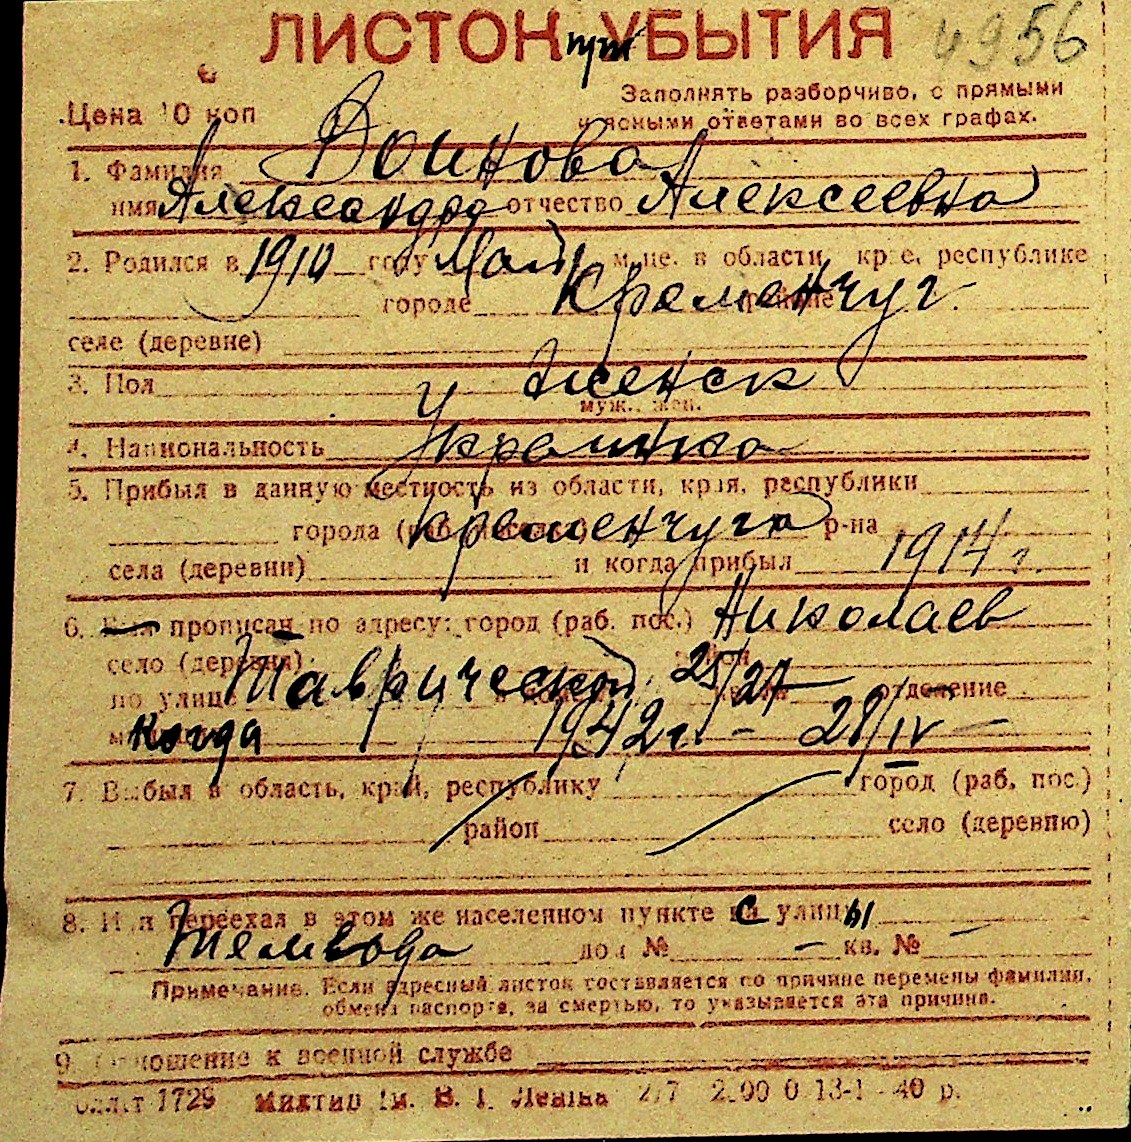 ЛИСТОК при УБЫТИЯ 4956
Цена 10 коп
Заполнять разборчиво, с прямыми
и ясными ответами во всех графах.
1. Фамилия Воинова
имя Александра отчество Алексеевна
2. Родился в 1910 году Май м-це. в области, крае, республике
городе Кременчуг
селе (деревне)
3. Пол Женск
муж., жен.
4. Национальность Украинка
5. Прибыл в данную местность из области, края, республики
города (раб. поселка) Кременчуга р-на
села (деревни) и когда прибыл 1914 г.
6. Был прописан по адресу: город (раб. пос.) Николаев
село (деревня) район
по улице Таврической 25/27 отделение
когда 1942 г. - 28/IV -
7. Выбыл в область, край, республику город (раб. пос.)
район село (деревню)
8. Или переехал в этом же населенном пункте с улицы -
Темвода дом № - кв. № -
Примечание. Если адресный листок составляется по причине перемены фамилии,
обмена паспорта, за смертью, то указывается эта причина.
9. Отношение к военной службе
1729 им. В. И. Ленина 2/7 13-1 - 40 р.